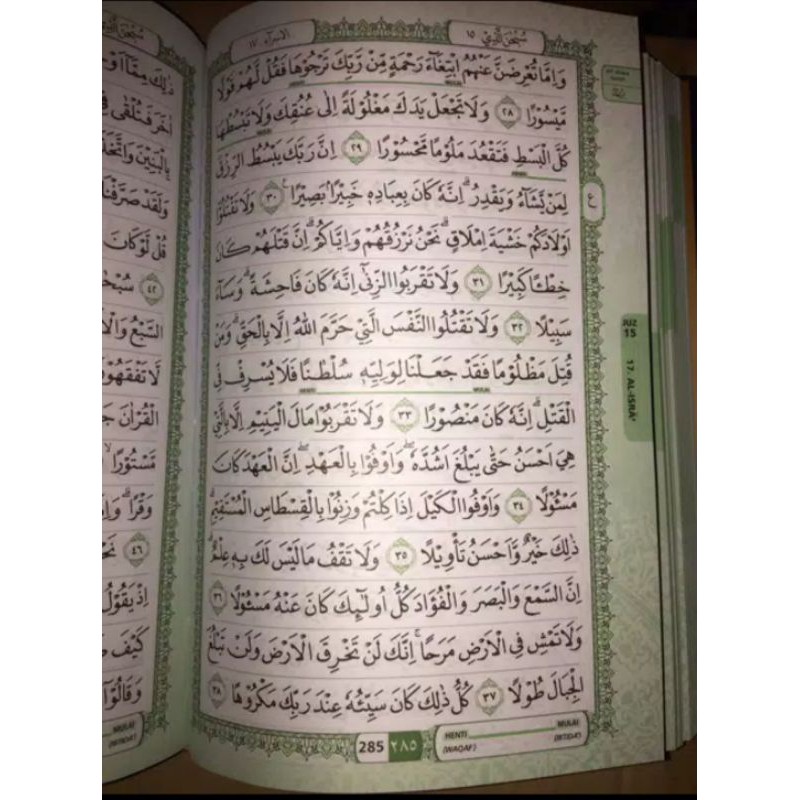 سُبْحٰنَ الَّذِيْ ١٥
الاسراء ١٧
وَاِمَّا تُعْرِضَنَّ عَنْهُمُ ابْتِغَاۤءَ رَحْمَةٍ مِّنْ رَّبِّكَ تَرْجُوْهَا فَقُلْ لَّهُمْ قَوْلًا
مَّيْسُوْرًا ٢٨ وَلَا تَجْعَلْ يَدَكَ مَغْلُوْلَةً اِلٰى عُنُقِكَ وَلَا تَبْسُطْهَا
كُلَّ الْبَسْطِ فَتَقْعُدَ مَلُوْمًا مَّحْسُوْرًا ٢٩ اِنَّ رَبَّكَ يَبْسُطُ الرِّزْقَ
لِمَنْ يَّشَاۤءُ وَيَقْدِرُۗ اِنَّهٗ كَانَ بِعِبَادِهٖ خَبِيْرًاۢ بَصِيْرًا ٣٠ وَلَا تَقْتُلُوْٓا
اَوْلَادَكُمْ خَشْيَةَ اِمْلَاقٍۗ نَحْنُ نَرْزُقُهُمْ وَاِيَّاكُمْۗ اِنَّ قَتْلَهُمْ كَانَ
خِطْـًٔا كَبِيْرًا ٣١ وَلَا تَقْرَبُوا الزِّنٰىٓ اِنَّهٗ كَانَ فَاحِشَةًۗ وَسَاۤءَ
سَبِيْلًا ٣٢ وَلَا تَقْتُلُوا النَّفْسَ الَّتِيْ حَرَّمَ اللّٰهُ اِلَّا بِالْحَقِّۗ وَمَنْ
قُتِلَ مَظْلُوْمًا فَقَدْ جَعَلْنَا لِوَلِيِّهٖ سُلْطٰنًا فَلَا يُسْرِفْ فِّى
الْقَتْلِۗ اِنَّهٗ كَانَ مَنْصُوْرًا ٣٣ وَلَا تَقْرَبُوْا مَالَ الْيَتِيْمِ اِلَّا بِالَّتِيْ
هِيَ اَحْسَنُ حَتّٰى يَبْلُغَ اَشُدَّهٗۖ وَاَوْفُوْا بِالْعَهْدِۖ اِنَّ الْعَهْدَ كَانَ
مَسْـُٔوْلًا ٣٤ وَاَوْفُوا الْكَيْلَ اِذَا كِلْتُمْ وَزِنُوْا بِالْقِسْطَاسِ الْمُسْتَقِيْمِۗ
ذٰلِكَ خَيْرٌ وَّاَحْسَنُ تَأْوِيْلًا ٣٥ وَلَا تَقْفُ مَا لَيْسَ لَكَ بِهٖ عِلْمٌۗ
اِنَّ السَّمْعَ وَالْبَصَرَ وَالْفُؤَادَ كُلُّ اُولٰۤىِٕكَ كَانَ عَنْهُ مَسْـُٔوْلًا ٣٦
وَلَا تَمْشِ فِى الْاَرْضِ مَرَحًاۚ اِنَّكَ لَنْ تَخْرِقَ الْاَرْضَ وَلَنْ تَبْلُغَ
الْجِبَالَ طُوْلًا ٣٧ كُلُّ ذٰلِكَ كَانَ سَيِّئُهٗ عِنْدَ رَبِّكَ مَكْرُوْهًا ٣٨
285 ٢٨٥
HENTI MULAI
(WAQAF) (IBTIDA')
ع
JUZ
15
17. AL-ISRĀ'
ذٰلِكَ مِمَّآ
فَتُلْقٰى فِيْ
بِالْبَنِيْنَ وَاتَّخَذَ
وَلَقَدْ صَرَّفْنَا
قُلْ لَّوْ كَانَ
٤٢ سُبْحٰ
السَّبْعُ وَالْا
لَّا تَفْقَهُوْ
الْقُرْاٰنَ جَ
مَّسْتُوْرًا
وَقْرًاۗ وَاِ
٤٦ نَحْ
اِذْ يَقُوْلُ
كَيْفَ ض
وَقَالُوْٓا
MULAI
(IBTIDA')